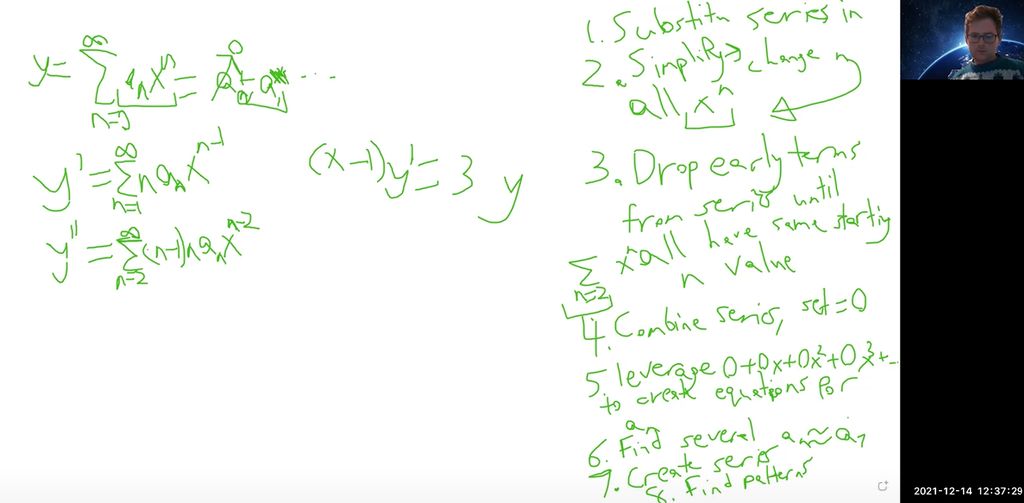 y = ∞ Σ n=0 aₙxⁿ = a₀ ...
y' = ∞ Σ n=1 n aₙ xⁿ⁻¹
y'' = ∞ Σ n=2 (n-1) n aₙ xⁿ⁻²
(x-1)y' = 3 y
1. Substitu series in
2. Simplify → change n
all xⁿ
3. Drop early terms
from series until
xⁿ all have same starting
Σ n=2
n value
4. Combine series, set = 0
5. leverage 0+0x+0x²+0x³+...
to create equations for
aₙ
6. Find several aₙ ≈ a₇
7. Create series
8. Find patterns
2021-12-14 12:37:29